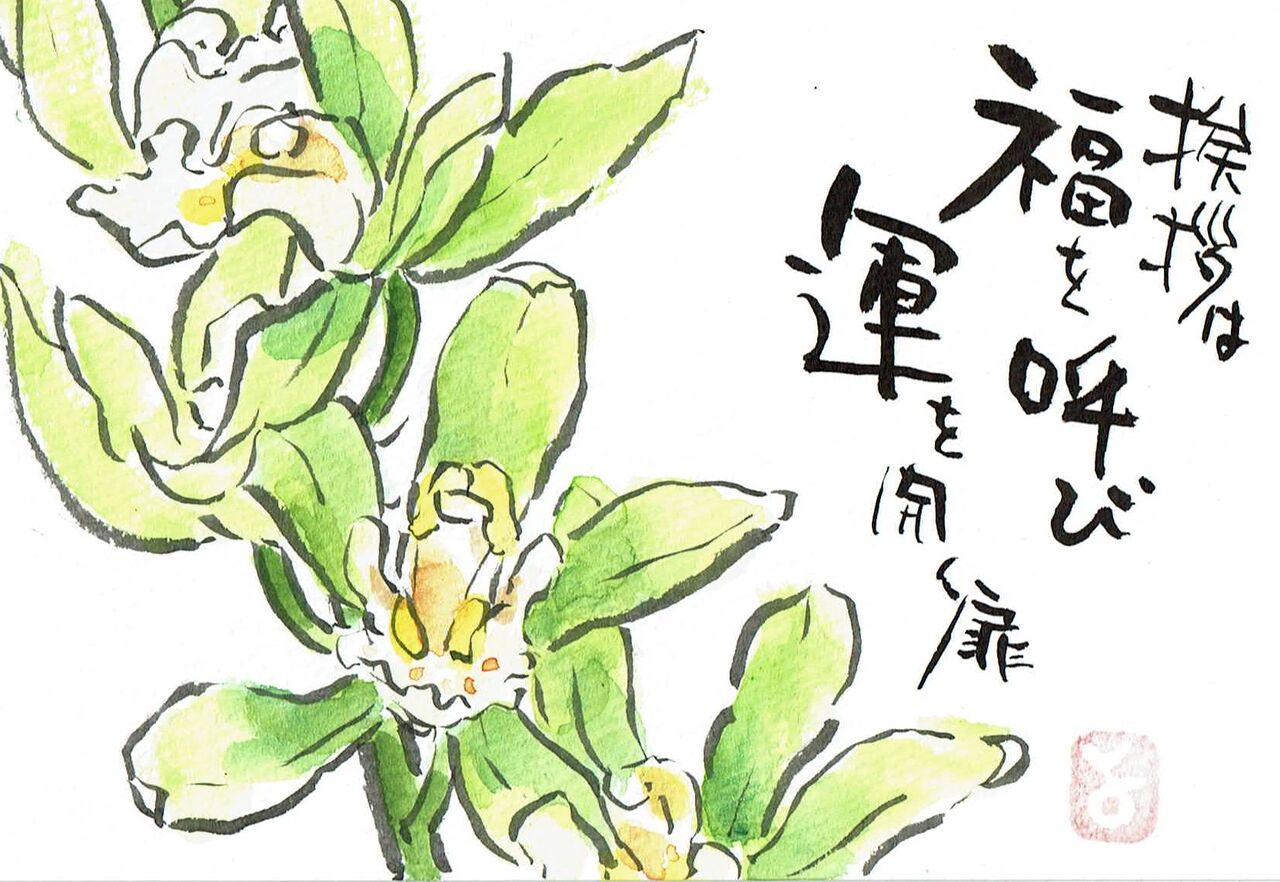 挨拶は
福を呼び
運を開く扉